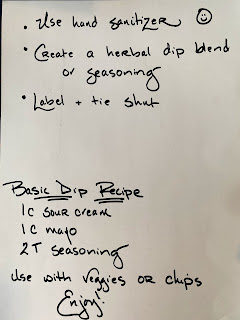 • Use hand sanitizer ☺
• Create a herbal dip blend
or seasoning
• Label + tie shut
Basic Dip Recipe
1C sour cream
1C mayo
2T seasoning
Use with veggies or chips
Enjoy!